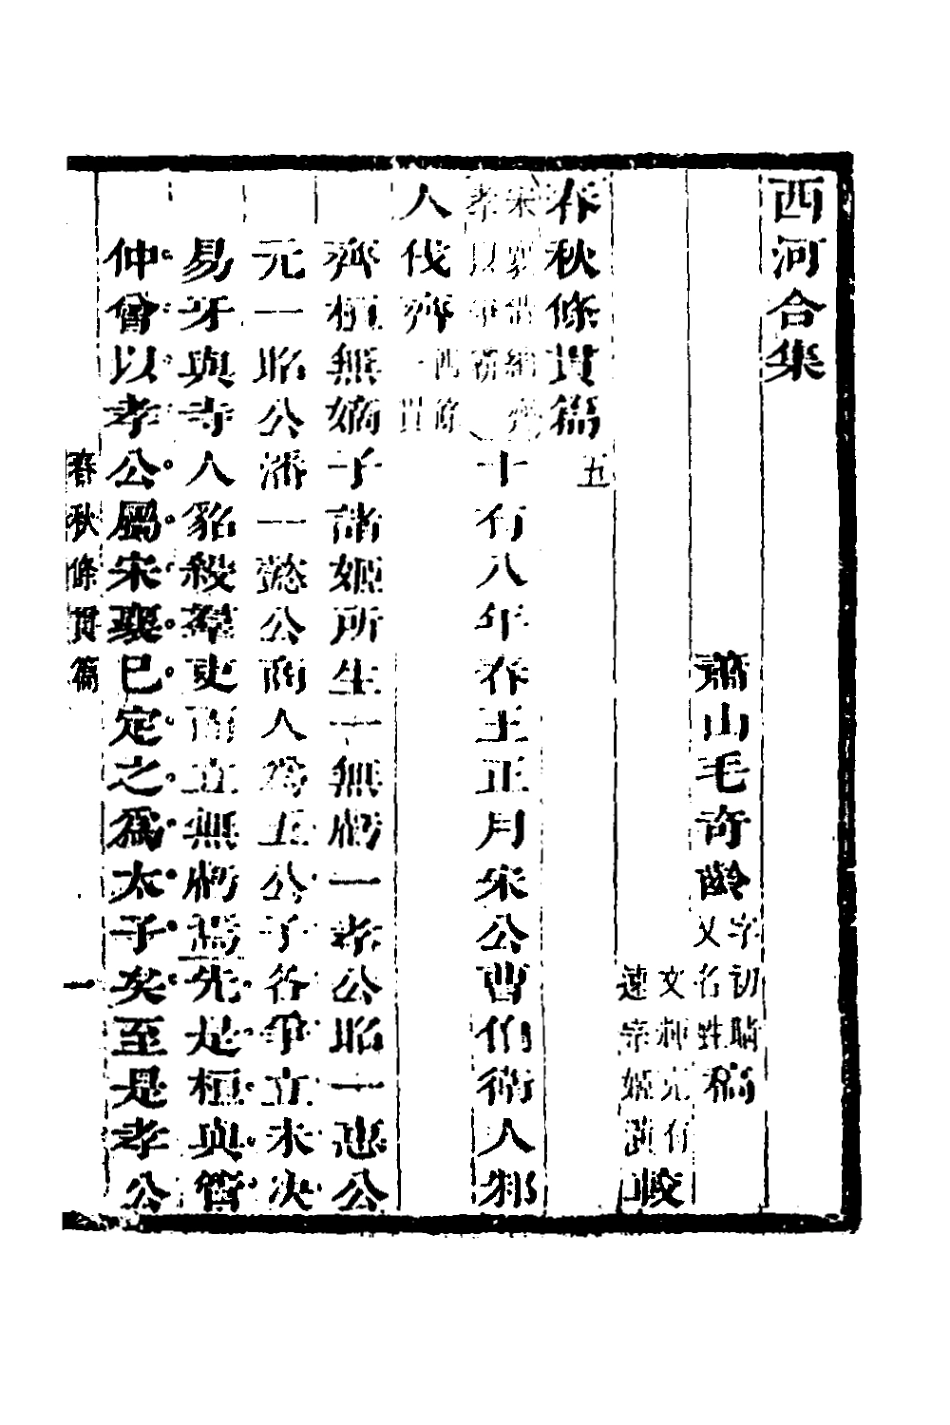 西河合集
蕭山毛奇齡字初晴又名甡稿
文輝充有遠宗姬潢較
春秋條貫篇五
宋襄 納齊孝以爭霸 十有八年春王正月宋公曹伯衛人邾
人伐齊四條一貫
齊桓無嫡子諸姬所生一無虧一孝公昭一惠公
元一昭公潘一懿公商人為五公子各爭立未決
易牙與寺人貂殺羣吏而立無虧焉先是桓與管
仲曾以孝公屬宋襄已定之為太子矣至是孝公
春秋條貫篇 一